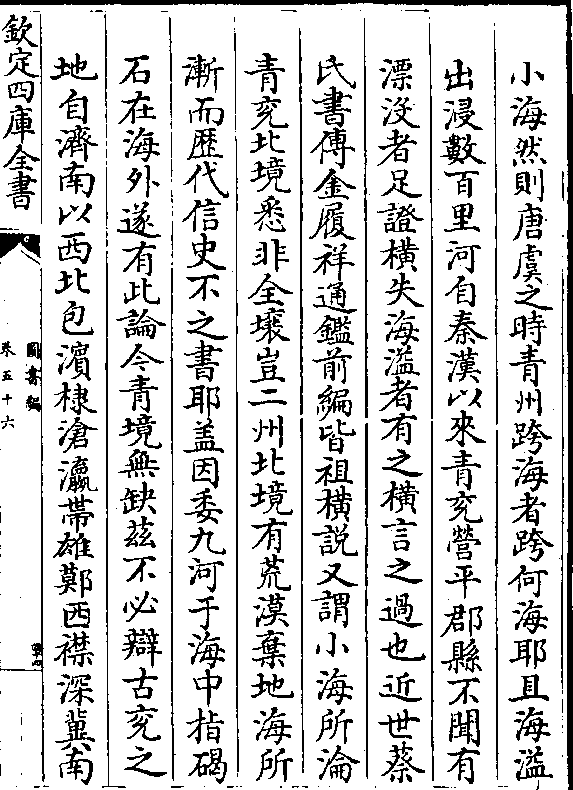 小海然則唐虞之時青州跨海者跨何海耶且海溢
出浸數百里河自秦漢以來青兖營平郡縣不聞有
漂没者足證横失海溢者有之横言之過也近世蔡
氏書傳金履祥通鑑前編皆祖横説又謂小海所淪
青兖北境悉非全壤豈二州北境有荒漠棄地海所
漸而歴代信史不之書耶盖因委九河于海中指碣
石在海外遂有此論今青境無缺兹不必辯古兖之
地自濟南以西北包濱棣滄瀛帶雄鄚西襟深冀南
欽定四庫全書
圖書編
卷五十六